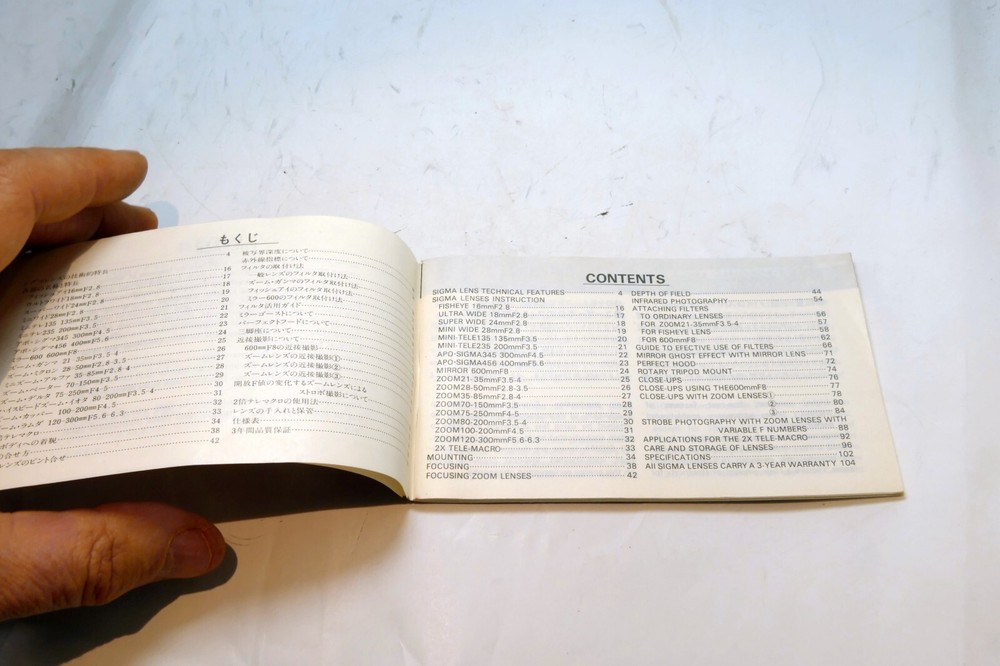 もくじ
4
の技術的特長
16mmF2.8 16
18mmF2.8 17
24mmF2.8 18
28mmF2.8 19
135 135mmF3.5 20
235 200mmF3.5 21
345 300mmF4.5 22
456 400mmF5.6 23
600 600mmF8 24
21-35mmF3.5-4 25
28-50mmF2.8-3.5 26
35-85mmF2.8-4 27
70-150mmF3.5 28
ズーム・デルタ 75-250mmF4.5 29
ハイスピードズーム・イオタ 80-200mmF3.5-4 30
ズーム・カッパー 100-200mmF4.5 31
ズーム・ラムダ 120-300mmF5.6-6.3 32
テレマクロ 33
ボディへの着脱 34
合せ方 38
レンズのピント合せ 42
被写界深度について
赤外線指標について
フィルタの取付け法
一般レンズのフィルタ取付け法
ズーム・ガンマのフィルタ取付け法
フィッシュアイのフィルタ取付け法
ミラー600のフィルタ取付け法
フィルタ活用ガイド
ミラーゴーストについて
パーフェクトフードについて
三脚座について
近接撮影
600mmF8の近接撮影
ズームレンズの近接撮影①
ズームレンズの近接撮影②
ズームレンズの近接撮影③
開放F値の変化するズームレンズによる
ストロボ撮影について
2倍テレマクロの使用法
レンズの手入れと保管
仕様表
3年間品質保証
CONTENTS
SIGMA LENS TECHNICAL FEATURES 4
SIGMA LENSES INSTRUCTION
FISHEYE 16mmF2.8 16
ULTRA WIDE 18mmF2.8 17
SUPER WIDE 24mmF2.8 18
MINI WIDE 28mmF2.8 19
MINI-TELE135 135mmF3.5 20
MINI-TELE235 200mmF3.5 21
APO-SIGMA345 300mmF4.5 22
APO-SIGMA456 400mmF5.6 23
MIRROR 600mmF8 24
ZOOM21-35mmF3.5-4 25
ZOOM28-50mmF2.8-3.5 26
ZOOM35-85mmF2.8-4 27
ZOOM70-150mmF3.5 28
ZOOM75-250mmF4-5 29
ZOOM80-200mmF3.5-4 30
ZOOM100-200mmF4.5 31
ZOOM120-300mmF5.6-6.3 32
2X TELE-MACRO 33
MOUNTING 34
FOCUSING 38
FOCUSING ZOOM LENSES 42
DEPTH OF FIELD 44
INFRARED PHOTOGRAPHY 54
ATTACHING FILTERS
TO ORDINARY LENSES 56
FOR ZOOM21-35mmF3.5-4 57
FOR FISHEYE LENS 58
FOR 600mmF8 62
GUIDE TO EFECTIVE USE OF FILTERS 66
MIRROR GHOST EFFECT WITH MIRROR LENS 71
PERFECT HOOD 72
ROTARY TRIPOD MOUNT 74
CLOSE-UPS 76
CLOSE-UPS USING THE600mmF8 77
CLOSE-UPS WITH ZOOM LENSES① 78
② 80
③ 84
STROBE PHOTOGRAPHY WITH ZOOM LENSES WITH
VARIABLE F NUMBERS 88
APPLICATIONS FOR THE 2X TELE-MACRO 92
CARE AND STORAGE OF LENSES 96
SPECIFICATIONS 102
All SIGMA LENSES CARRY A 3-YEAR WARRANTY 104